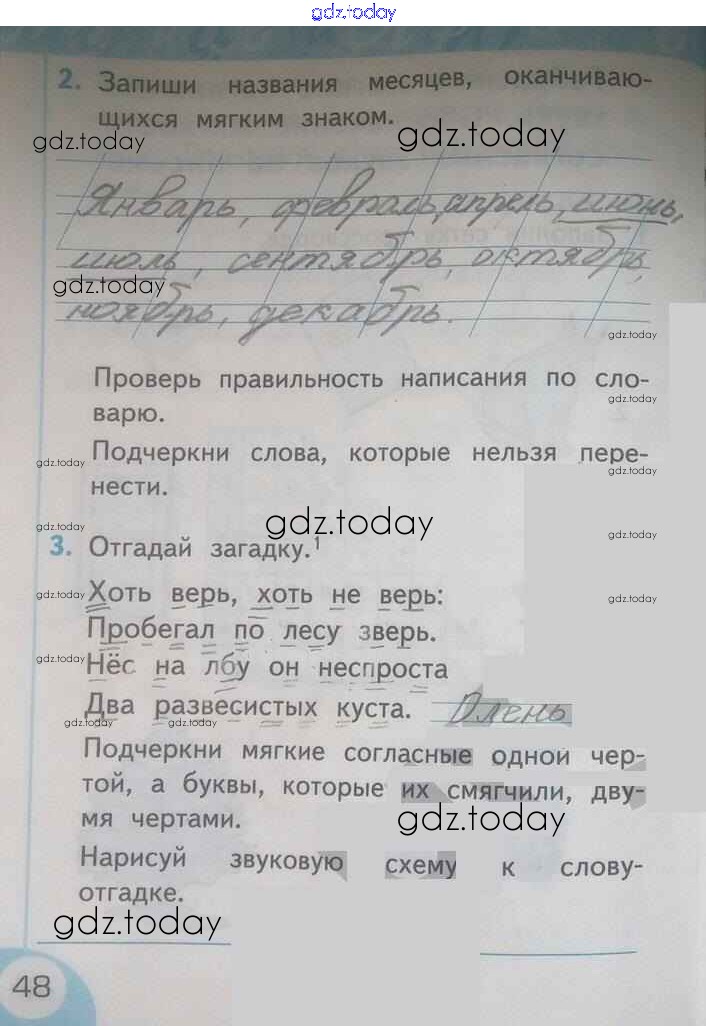 gdz.today
2. Запиши названия месяцев, оканчиваю-
щихся мягким знаком.
gdz.today
gdz.today
Январь, февраль, апрель, июнь,
июль, сентябрь, октябрь,
gdz.today
ноябрь, декабрь.
gdz.today
Проверь правильность написания по сло-
gdz.today
варю.
Подчеркни слова, которые нельзя пере-
gdz.today
gdz.today
нести.
gdz.today
gdz.today
gdz.today
3. Отгадай загадку.¹
gdz.today
Хоть верь, хоть не верь:
gdz.today
Пробегал по лесу зверь.
gdz.today
Нёс на лбу он неспроста
Два развесистых куста. Олень
gdz.today
gdz.today
Подчеркни мягкие согласные одной чер-
той, а буквы, которые их смягчили, дву-
мя чертами.
gdz.today
Нарисуй звуковую схему к слову-
отгадке.
gdz.today
48